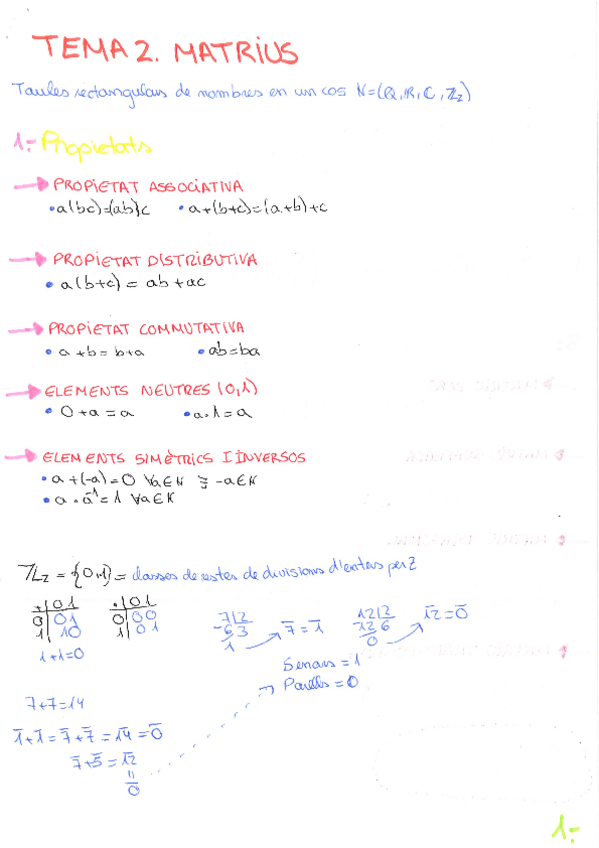 TEMA 2. MATRIUS
Taules rectangulars de nombres en un cos K=(Q, R, C, Z₂)
1.- Propietats
→ PROPIETAT ASSOCIATIVA
• a(bc)=(ab)c • a+(b+c)=(a+b)+c
→ PROPIETAT DISTRIBUTIVA
• a(b+c) = ab + ac
→ PROPIETAT COMMUTATIVA
• a+b = b+a • ab=ba
→ ELEMENTS NEUTRES (0,1)
• 0+a = a • a·1 = a
→ ELEMENTS SIMÈTRICS I INVERSOS
• a+(-a)=0 ∀a∈K ∃ -a∈K
• a·a⁻¹=1 ∀a∈K
Z₂ = {0,1} = classes de restes de divisions d'enters per 2
+|0 1 ·|0 1
0|0 1 0|0 0
1|1 0 1|0 1
1+1=0
7|2
-6 3
1
7̅ = 1̅
12|2
12 6
0
1̅2̅ = 0̅
Senars = 1
Parells = 0
7+7=14
1̅+1̅ = 7̅+7̅ = 1̅4̅ = 0̅
7̅+5̅ = 1̅2̅
=
0̅
1.-